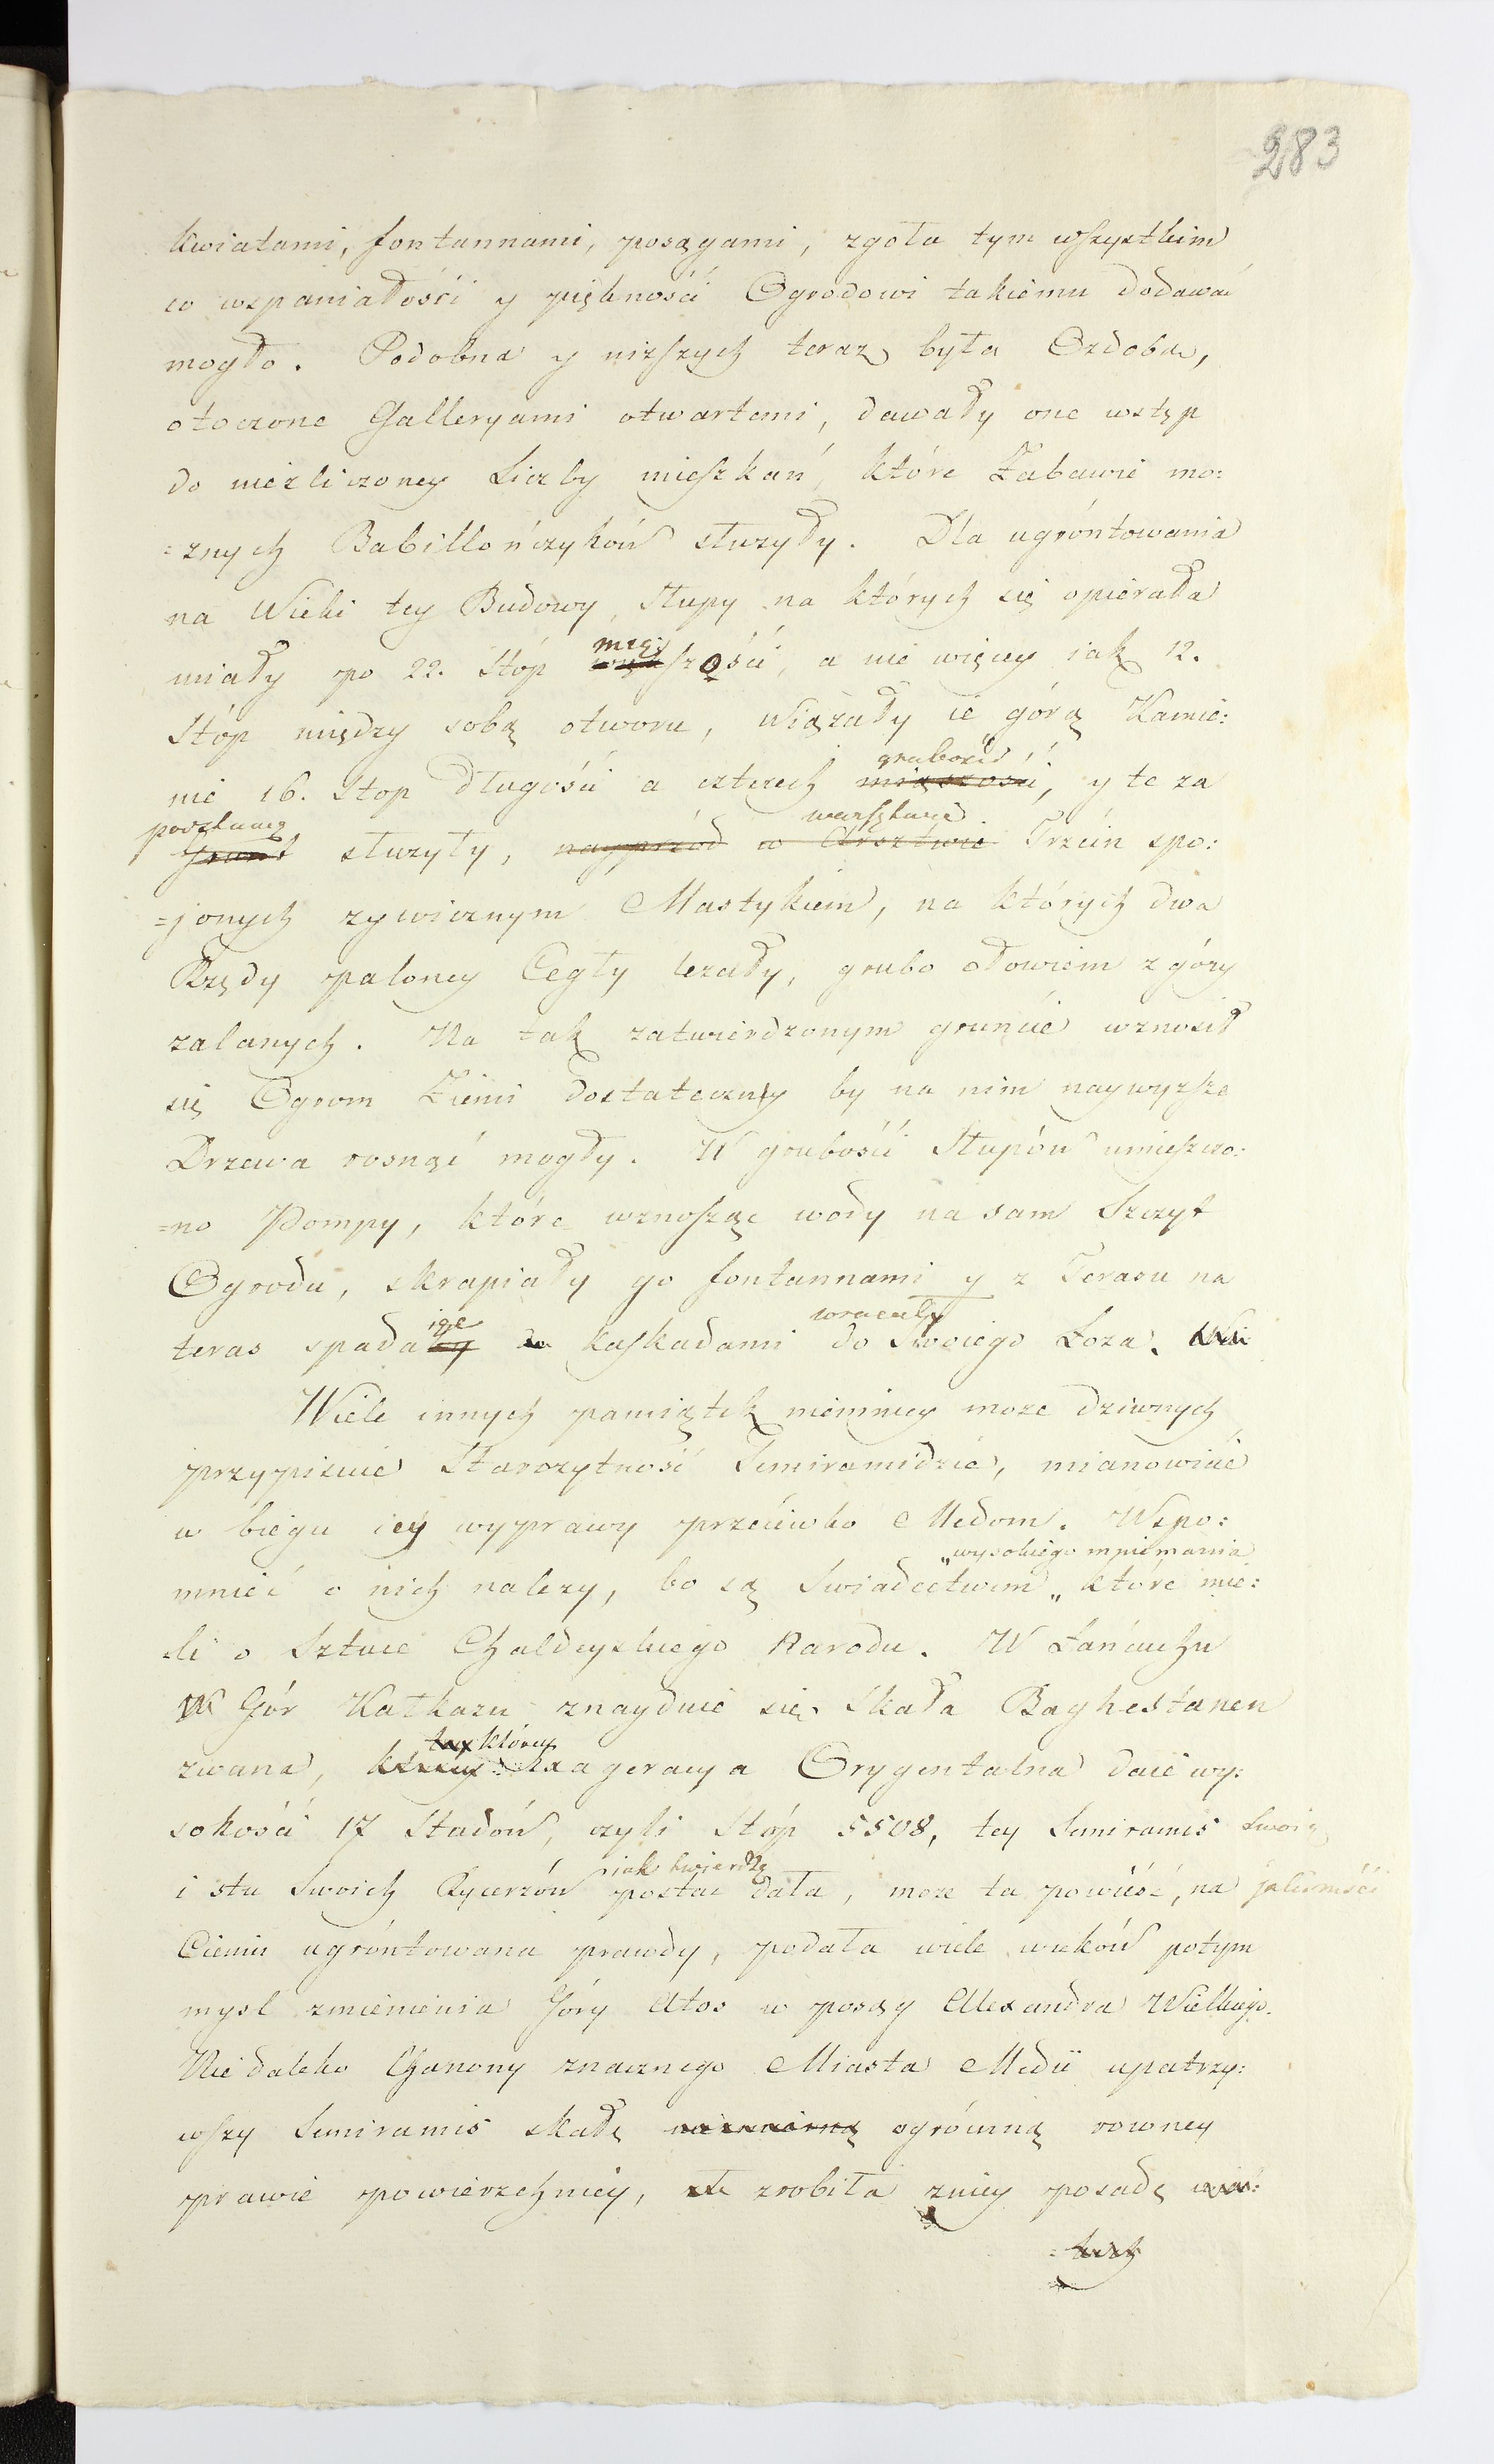 283
kwiatami, fontannami, posągami, zgoła tym wszystkim
co wspaniałości y piękności Ogrodowi takiemu dodawać
mogło. Podobna y niższych teraz była Ozdoba,
otoczone Galleryami otwartemi, dawały one wstęp
do niezliczoney Liczby mieszkań, które Zabawie mo:
=znych Babillończyków służyły. Dla ugróntowania
na Wieki tey Budowy, Słupy na których się opierała
miąż
miały po 22. Stóp szości, a nie więcey iak 12.
Stóp między sobą otworu, Wiązały ie górą Kamie:
grubości
nie 16. Stop długości a czterech miąszości, y te za
podstawę warsztwie
Grunt służyły, nayprzód w Warsztwie Trzcin spo:
=jonych zywicznym Mastykiem, na których dwa
Rzędy paloney Cegły lezały, grubo ołowiem z góry
zalanych. Na tak zatwierdzonym gruncie wznosił
się Ogrom Ziemi dostateczny by na nim naywyższe
Drzewa rosnąć mogły. W grubości Słupów umieszczo:
=no Pompy, które wznosząc wody na sam Szczyt
Ogrodu, skrapiały go fontannami y z Terasu na
iąc wracały
teras spadały kaskadami do Swoiego Łoza.
Wiele innych pamiątek niemniey moze dziwnych
przypisuie Starozytność Semiramidzie, mianowicie
w biegu iey wyprawy przeciwko Medom. Wspo:
„wysokiego mniemania
mnieć o nich nalezy, bo są Swiadectwem „ które mie:
li o Sztuce Chaldeyskiego Narodu. W Łańcuchu
Gór Kaukazu znayduie się Skała Baghestanen
którey
zwana, Exageracya Oryentalna daie wy:
sokości 17 Stadów, czyli Stóp 5508, tey Semiramis Swoię
iak twierdzą
i stu Swoich Rycerzów postac dała, moze ta powieść, na jakiemści
Cieniu ugróntowana prawdy, podała wiele wieków potym
mysl zmienienia Góry Atos w posąg Alexandra Wielkiego.
Nie daleko Chanony znacznego Miasta Medii upatrzy:
wszy Semiramis skałę niezmierną ogrómną rowney
prawie powierzchniey, zrobiła zniey posadę